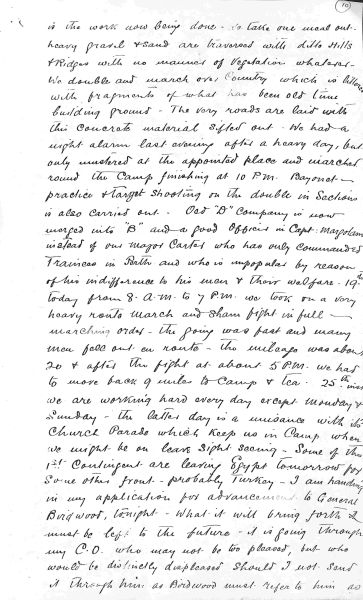 10
is the work now being done - to take one meal out -
heavy gravel & sand are traversed with ditto Hills
& Ridges with no manner of vegetation whatever -
We double and march over Country which is littered
with fragments of what has been old time
building ground - The very roads are laid with
this concrete material sifted out - We had a
night alarm last evening after a heavy day, but
only mustered at the appointed place and marched
round the Camp finishing at 10 P.M. Bayonet -
practice & target shooting on the double in Sections
is also carried out - Old "D" Company is now
merged into "B" and a good Officer in Capt. Margolin
instead of our Major Carter who has only commanded
Trainees in Perth and who is unpopular by reason
of his indifference to his men & their welfare - 19th
today from 8 A.M. to 7 P.M. we took on a very
heavy route march and sham fight in full -
marching order - the going was fast and many
men fell out en route - the mileage was about
20 & after the fight at about 5 P.M. we had
to move back 9 miles to Camp & tea - 25th inst
we are working hard every day except Monday &
Sunday - the latter day is a nuisance with its
Church Parade which keep us in Camp when
we might be on leave sight seeing - Some of the
1st Contingent are leaving Egypt tomorrow for
some other front - probably Turkey - I am handing
in my application for advancement to General
Birdwood, tonight - What it will bring forth I
must be left to the future - it is going through
my C.O. who may not be too pleased, but who
would be distinctly displeased should I not send
it through him as Birdwood must refer to him as